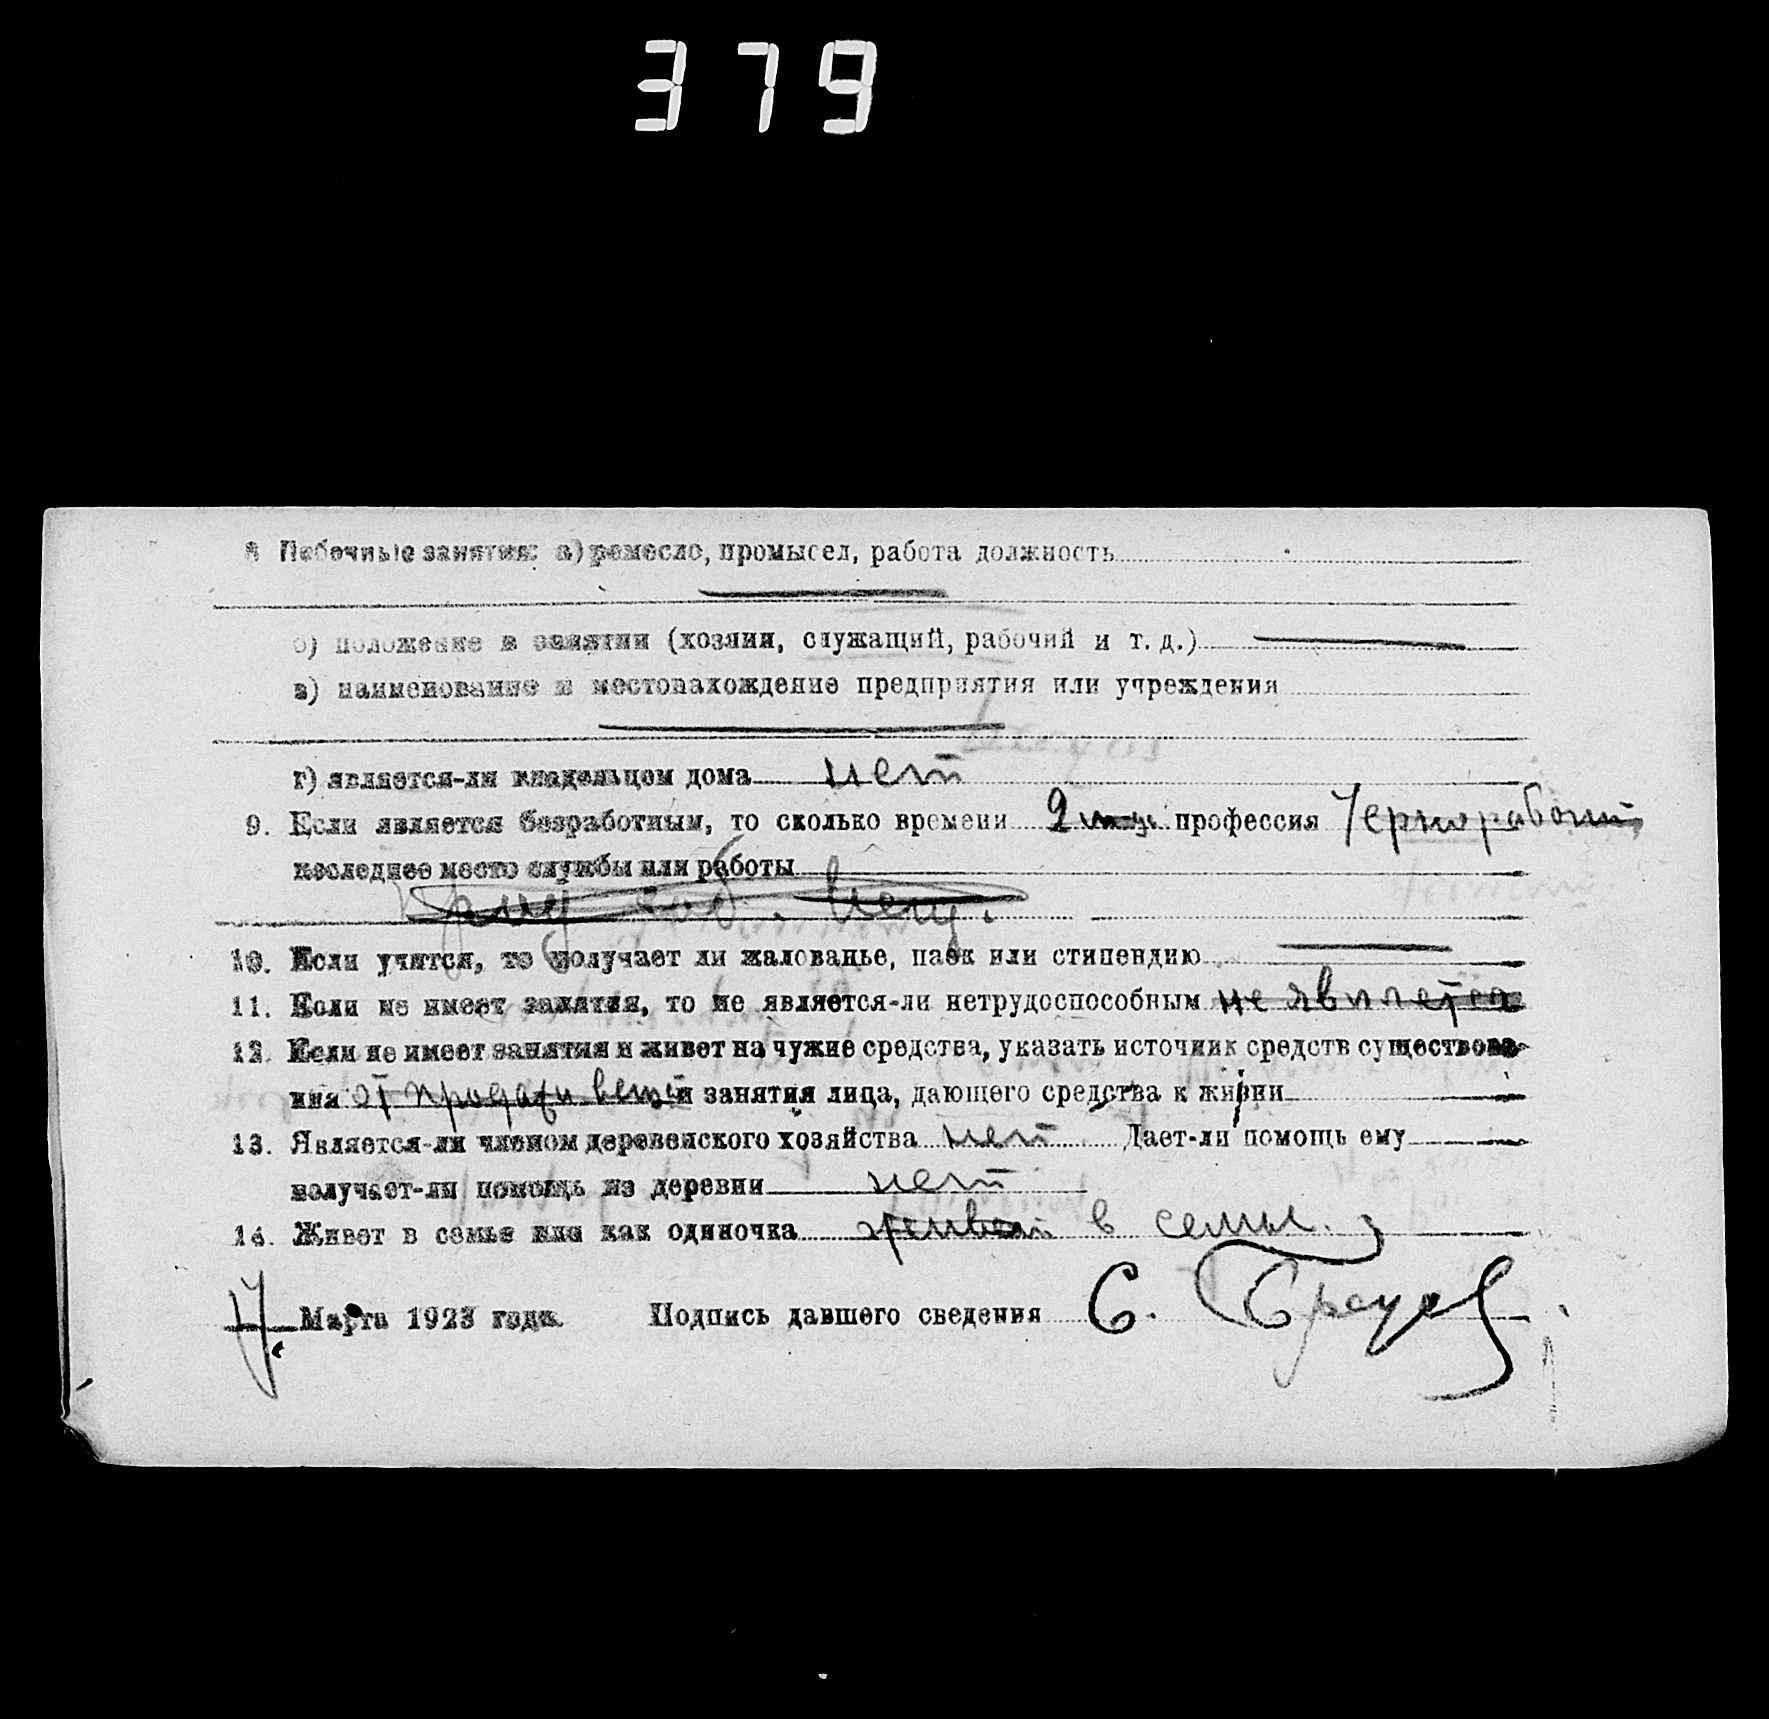 379
8 Побочные занятия: а) ремесло, промысел, работа должность
б) положение в занятии (хозяин, служащий, рабочий и т. д.)
в) наименование и местонахождение предприятия или учреждения
г) является-ли владельцем дома нет
9. Если является безработным, то сколько времени 2 профессия Чернорабочий
последнее место службы или работы
10. Если учится, то получает ли жалованье, паек или стипендию
11. Если не имеет занятия, то не является-ли нетрудоспособным не является
12. Если не имеет занятия и живет на чужие средства, указать источник средств существова-
ния от продажи вещей и занятия лица, дающего средства к жизни
13. Является-ли членом деревенского хозяйства нет Дает-ли помощь ему
получает-ли помощь из деревни нет
14. Живет в семье или как одиночка живет в семьи.
17 Марта 1923 года. Подпись давшего сведения С.